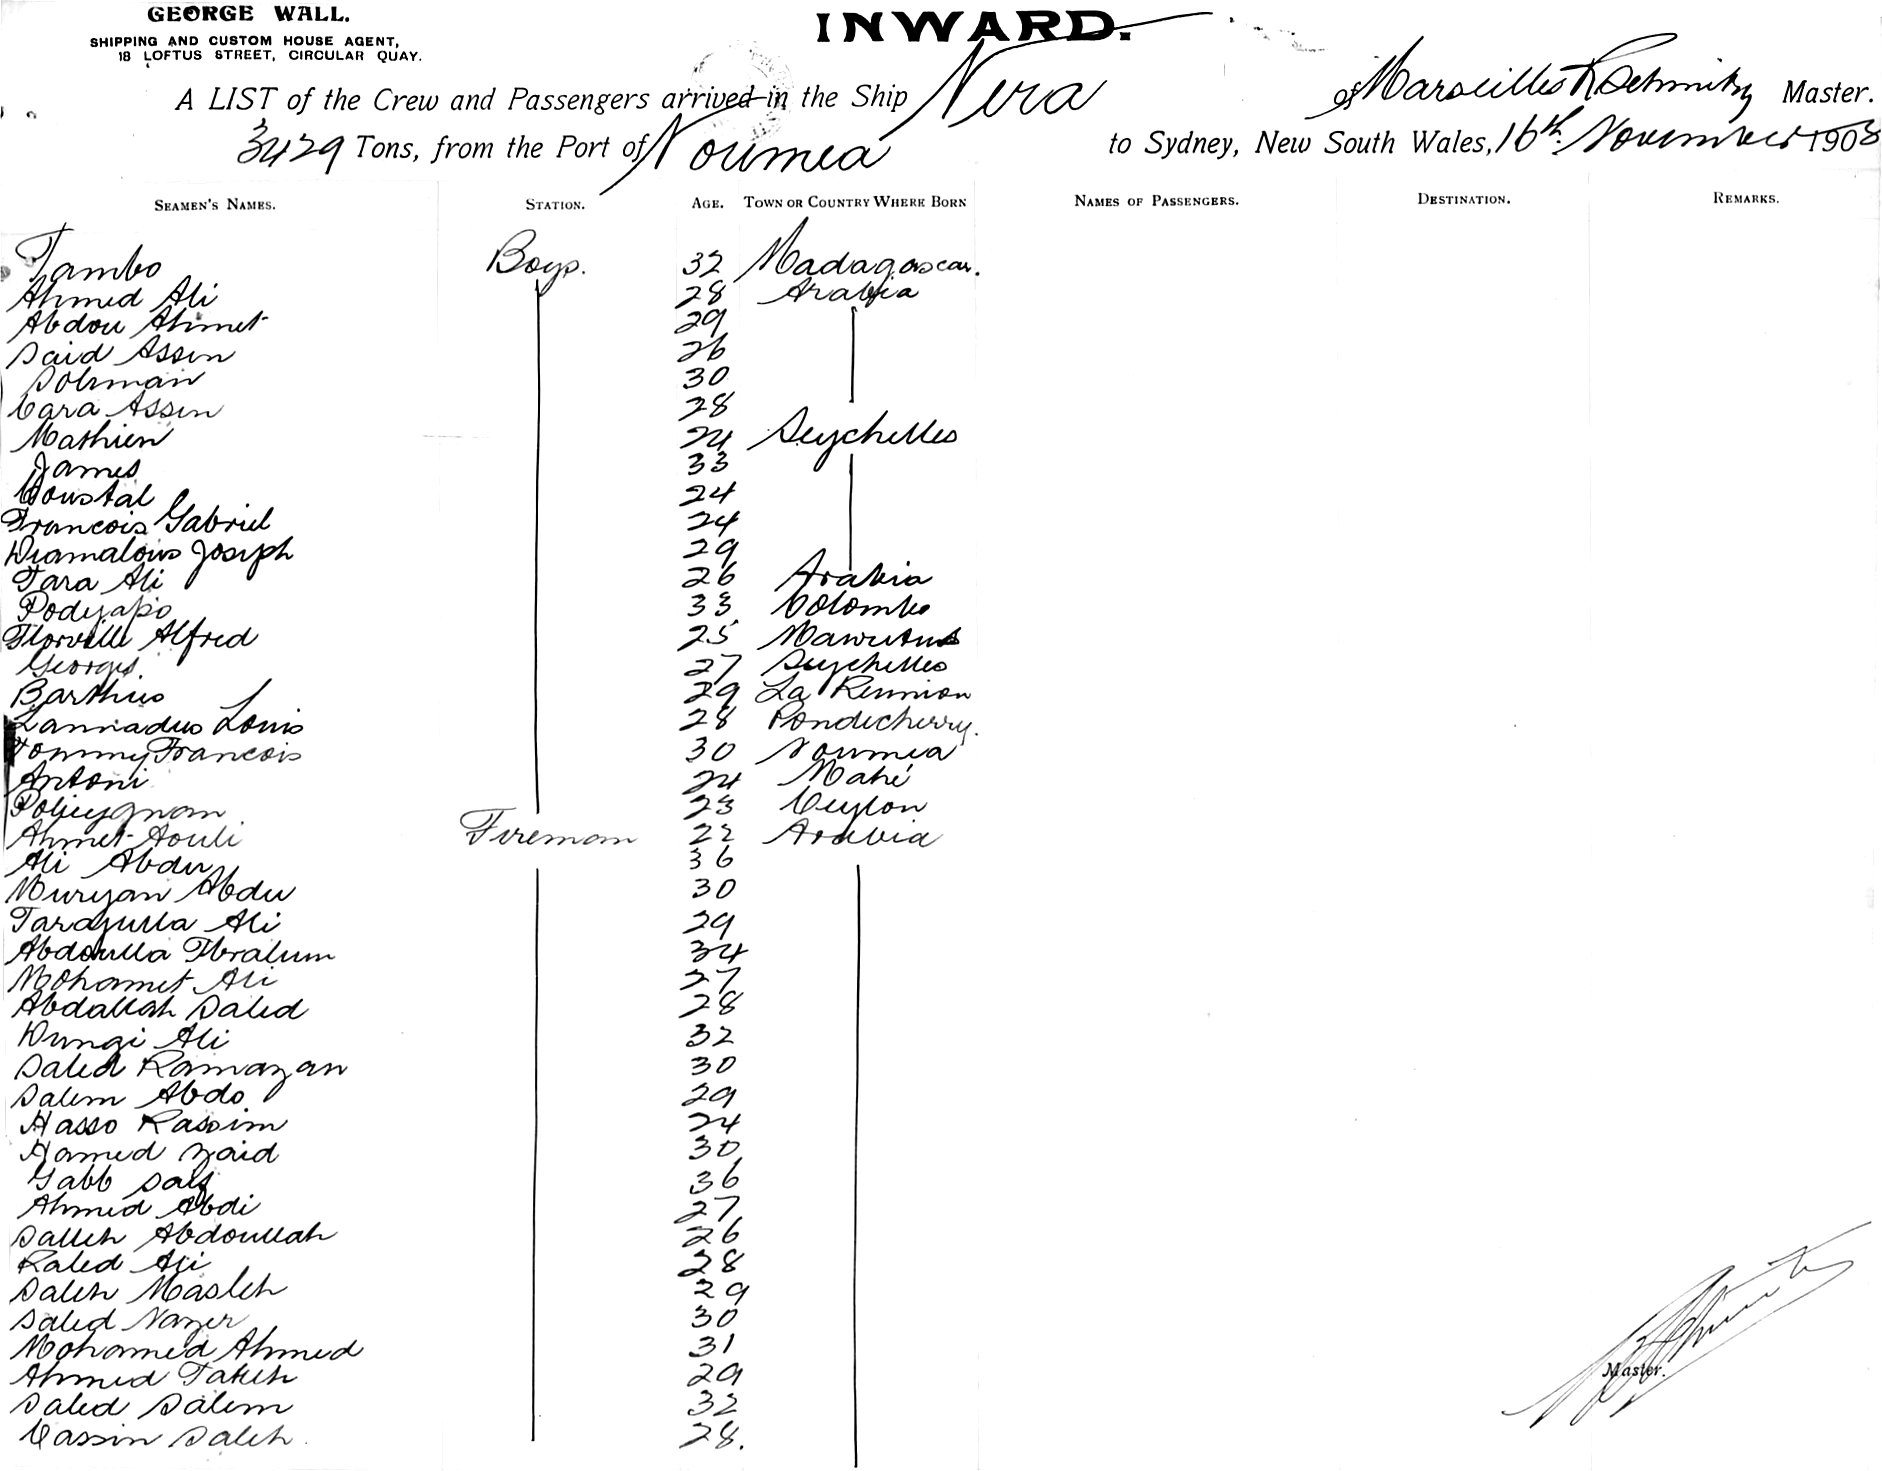 GEORGE WALL.
SHIPPING AND CUSTOM HOUSE AGENT,
18 LOFTUS STREET, CIRCULAR QUAY.
INWARD.
A LIST of the Crew and Passengers arrived in the Ship Nera of Marseilles R Schmitz Master.
3429 Tons, from the Port of Noumea to Sydney, New South Wales, 16th November 1903
SEAMEN'S NAMES. STATION. AGE. TOWN OR COUNTRY WHERE BORN NAMES OF PASSENGERS. DESTINATION. REMARKS.
Tambo Boys. 32 Madagascar.
Ahmed Ali 28 Arabia
Abdou Ahmet 29
Said Assen 26
Soliman 30
Cara Assen 28
Mathieu 24 Seychelles
James 33
Coustal 24
Francois Gabriel 24
Diamalous Joseph 29
Tara Ali 26 Arabia
Podyapo 33 Colombo
Florville Alfred 25 Mauritius
Georges 27 Seychelles
Barthus 29 La Reunion
Lannadus Louis 28 Pondicherry.
Tommy Francois 30 Noumea
Antoni 24 Mahé
23 Ceylon
Ahmet Aouli Fireman 22 Arabia
Ali Abdu 36
Muryan Abdu 30
Tarajulla Ali 29
Abdoulla Ibrahim 34
Mohamet Ali 27
Abdallah Saled 28
Dungi Ali 32
Saled Ramazan 30
Salem Abdo 29
Hasso Rassim 24
Hamed Zaid 30
Gabb Saif 36
Ahmed Abdi 27
Salleh Abdoullah 26
Raled Ali 28
Saleh Masleh 29
Saled Nazer 30
Mohamed Ahmed 31
Ahmed Taheh 29
Saled Salem 32
Cassin Saleh. 28.
Master.